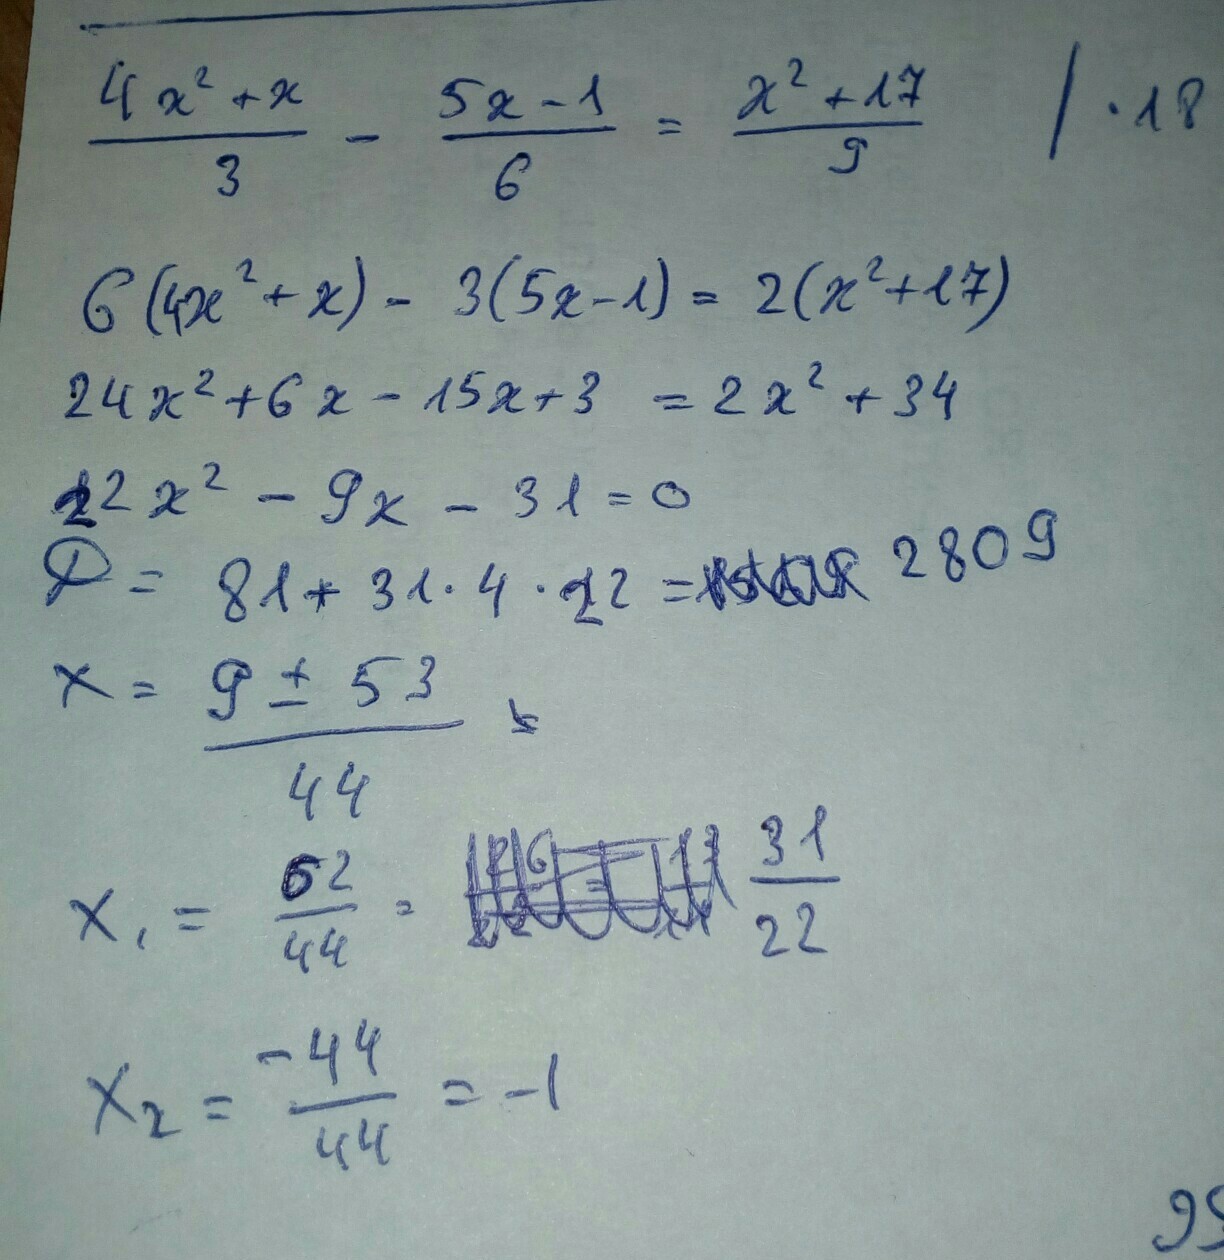 (4x² + x)/3 - (5x - 1)/6 = (x² + 17)/9 / · 18
6(4x² + x) - 3(5x - 1) = 2(x² + 17)
24x² + 6x - 15x + 3 = 2x² + 34
22x² - 9x - 31 = 0
D = 81 + 31 · 4 · 22 = 2809
x = (9 ± 53)/44
x₁ = 62/44 = 31/22
x₂ = -44/44 = -1